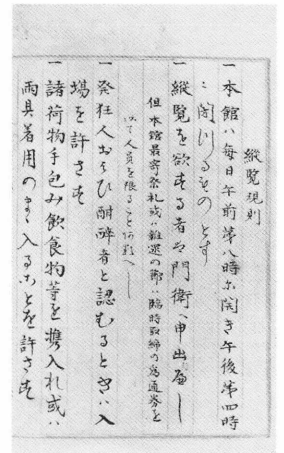 縦覧規則
一本館ハ毎日午前第八時ニ開き午後第四時
ニ閉つるものとす
一縦覧を欲する者ハ門衛ヘ申出へし
但本館最寄祭礼或ハ雑遝の節ハ臨時取締の為通券を
以て人員を限ること可有へし
一発狂人および酣酔者と認むるときハ入
場を許さす
一諸荷物手包み飲食物等を携入礼或ハ
雨具着用のまゝ入ることを許さす